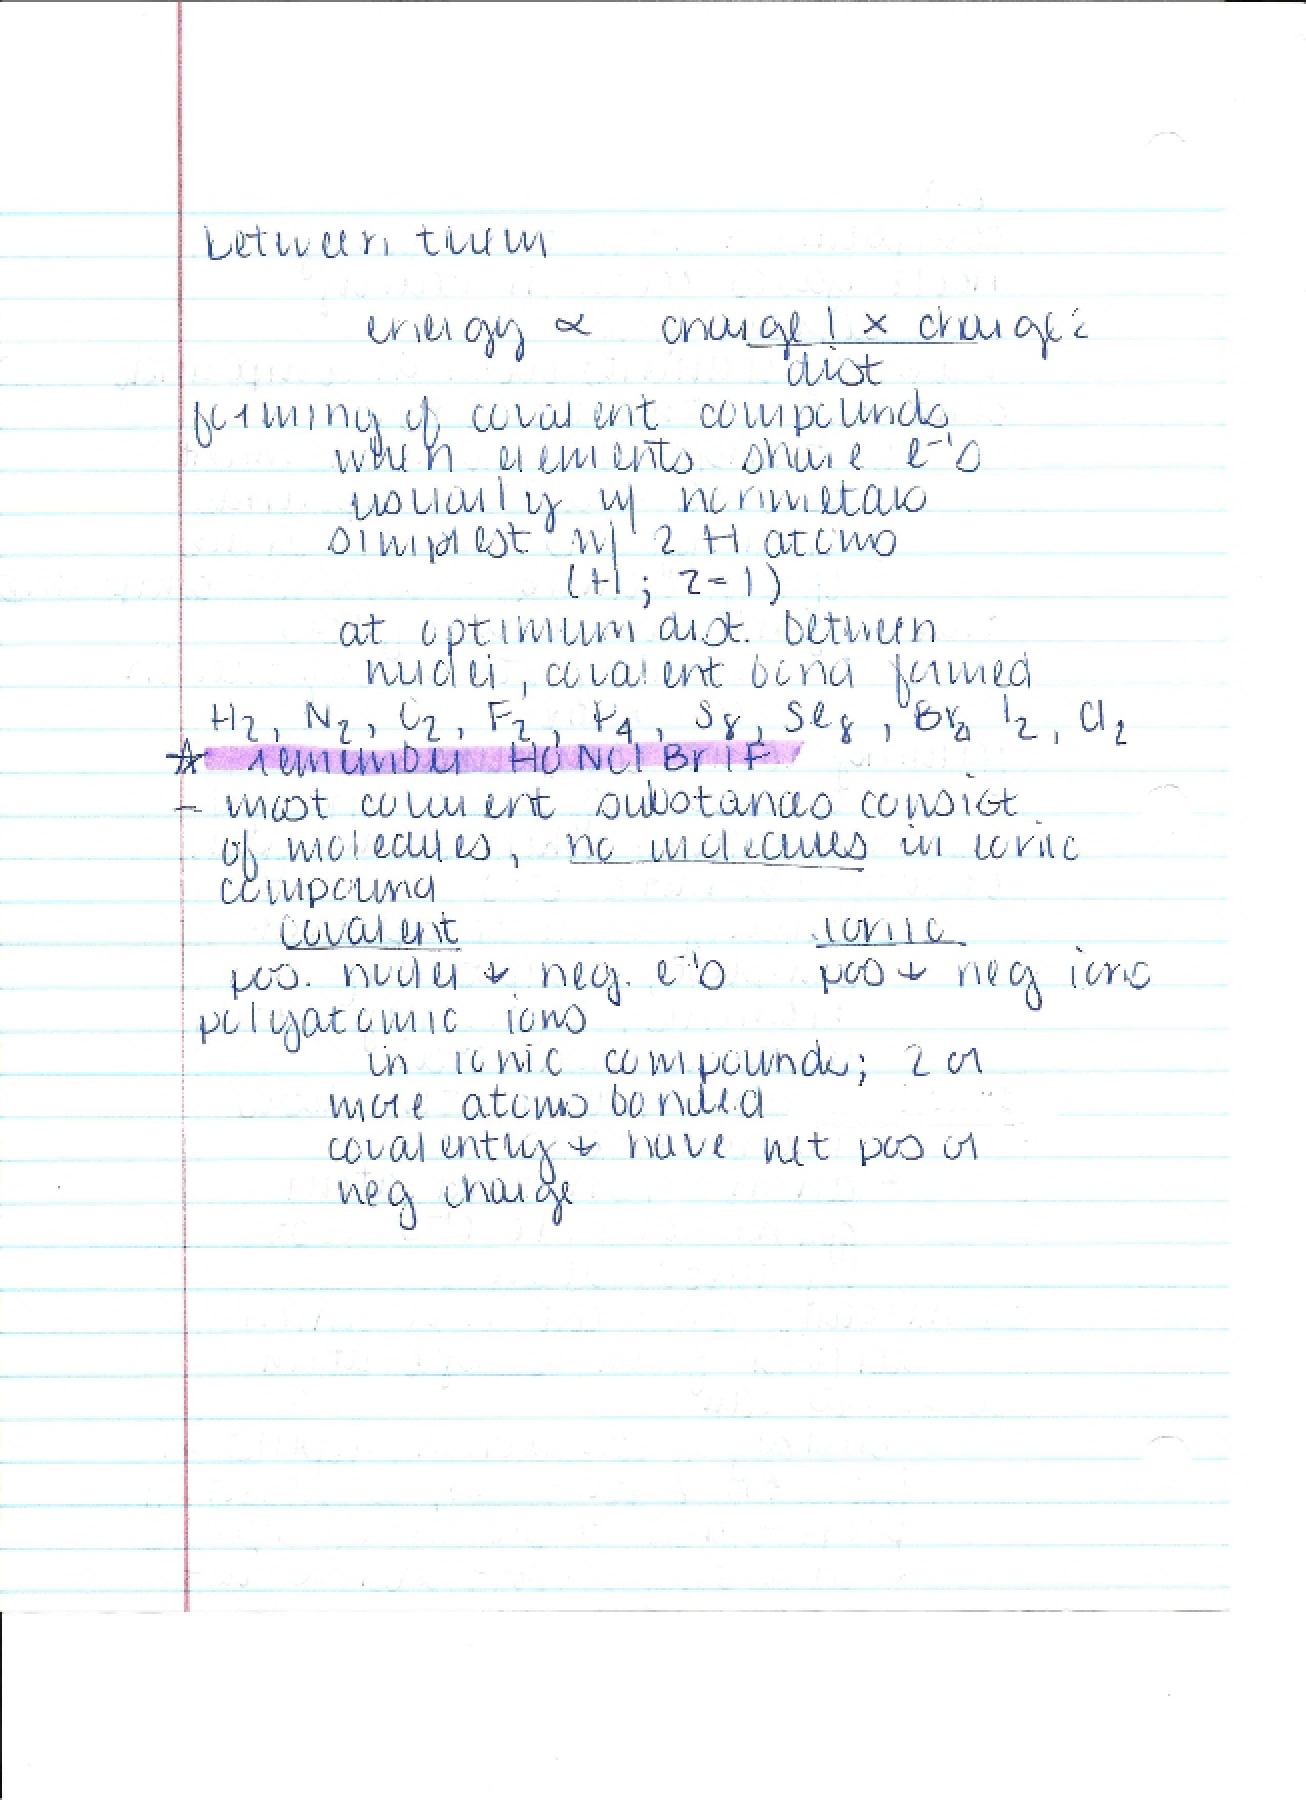 between them
energy ∝ charge 1 x charge 2
dist
forming of covalent compounds
when elements share e⁻'s
usually w/ nonmetals
simplest w/ 2 H atoms
(H; Z=1)
at optimum dist. between
nuclei, covalent bond formed
H₂, N₂, O₂, F₂, P₄, S₈, Se₈, Br₂ I₂, Cl₂
☆ remember HONClBrIF
- most covalent substances consist
of molecules, no molecules in ionic
compound
covalent ionic
pos. nuclei + neg. e⁻'s pos + neg ions
polyatomic ions
in ionic compounds; 2 or
more atoms bonded
covalently + have net pos or
neg charge